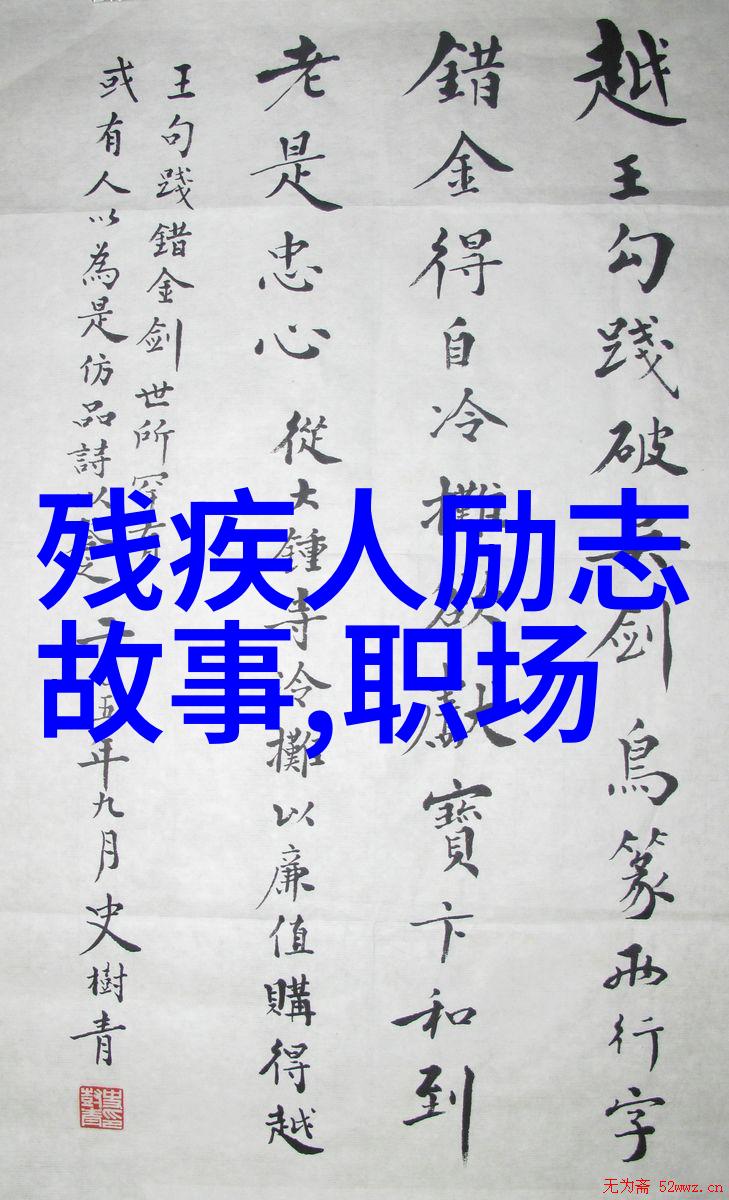 越王勾踐破吴剑鳥篆兩行字
錯金得自冷攤欲獻寶卞和到
老是忠心 從大鍾寺冷攤以廉值購得越
王句踐錯金剑世所罕有
或有人以為是仿品詩以五年九月史樹青
残疾人励志
故事,职场
无为斋 52wwz.cn